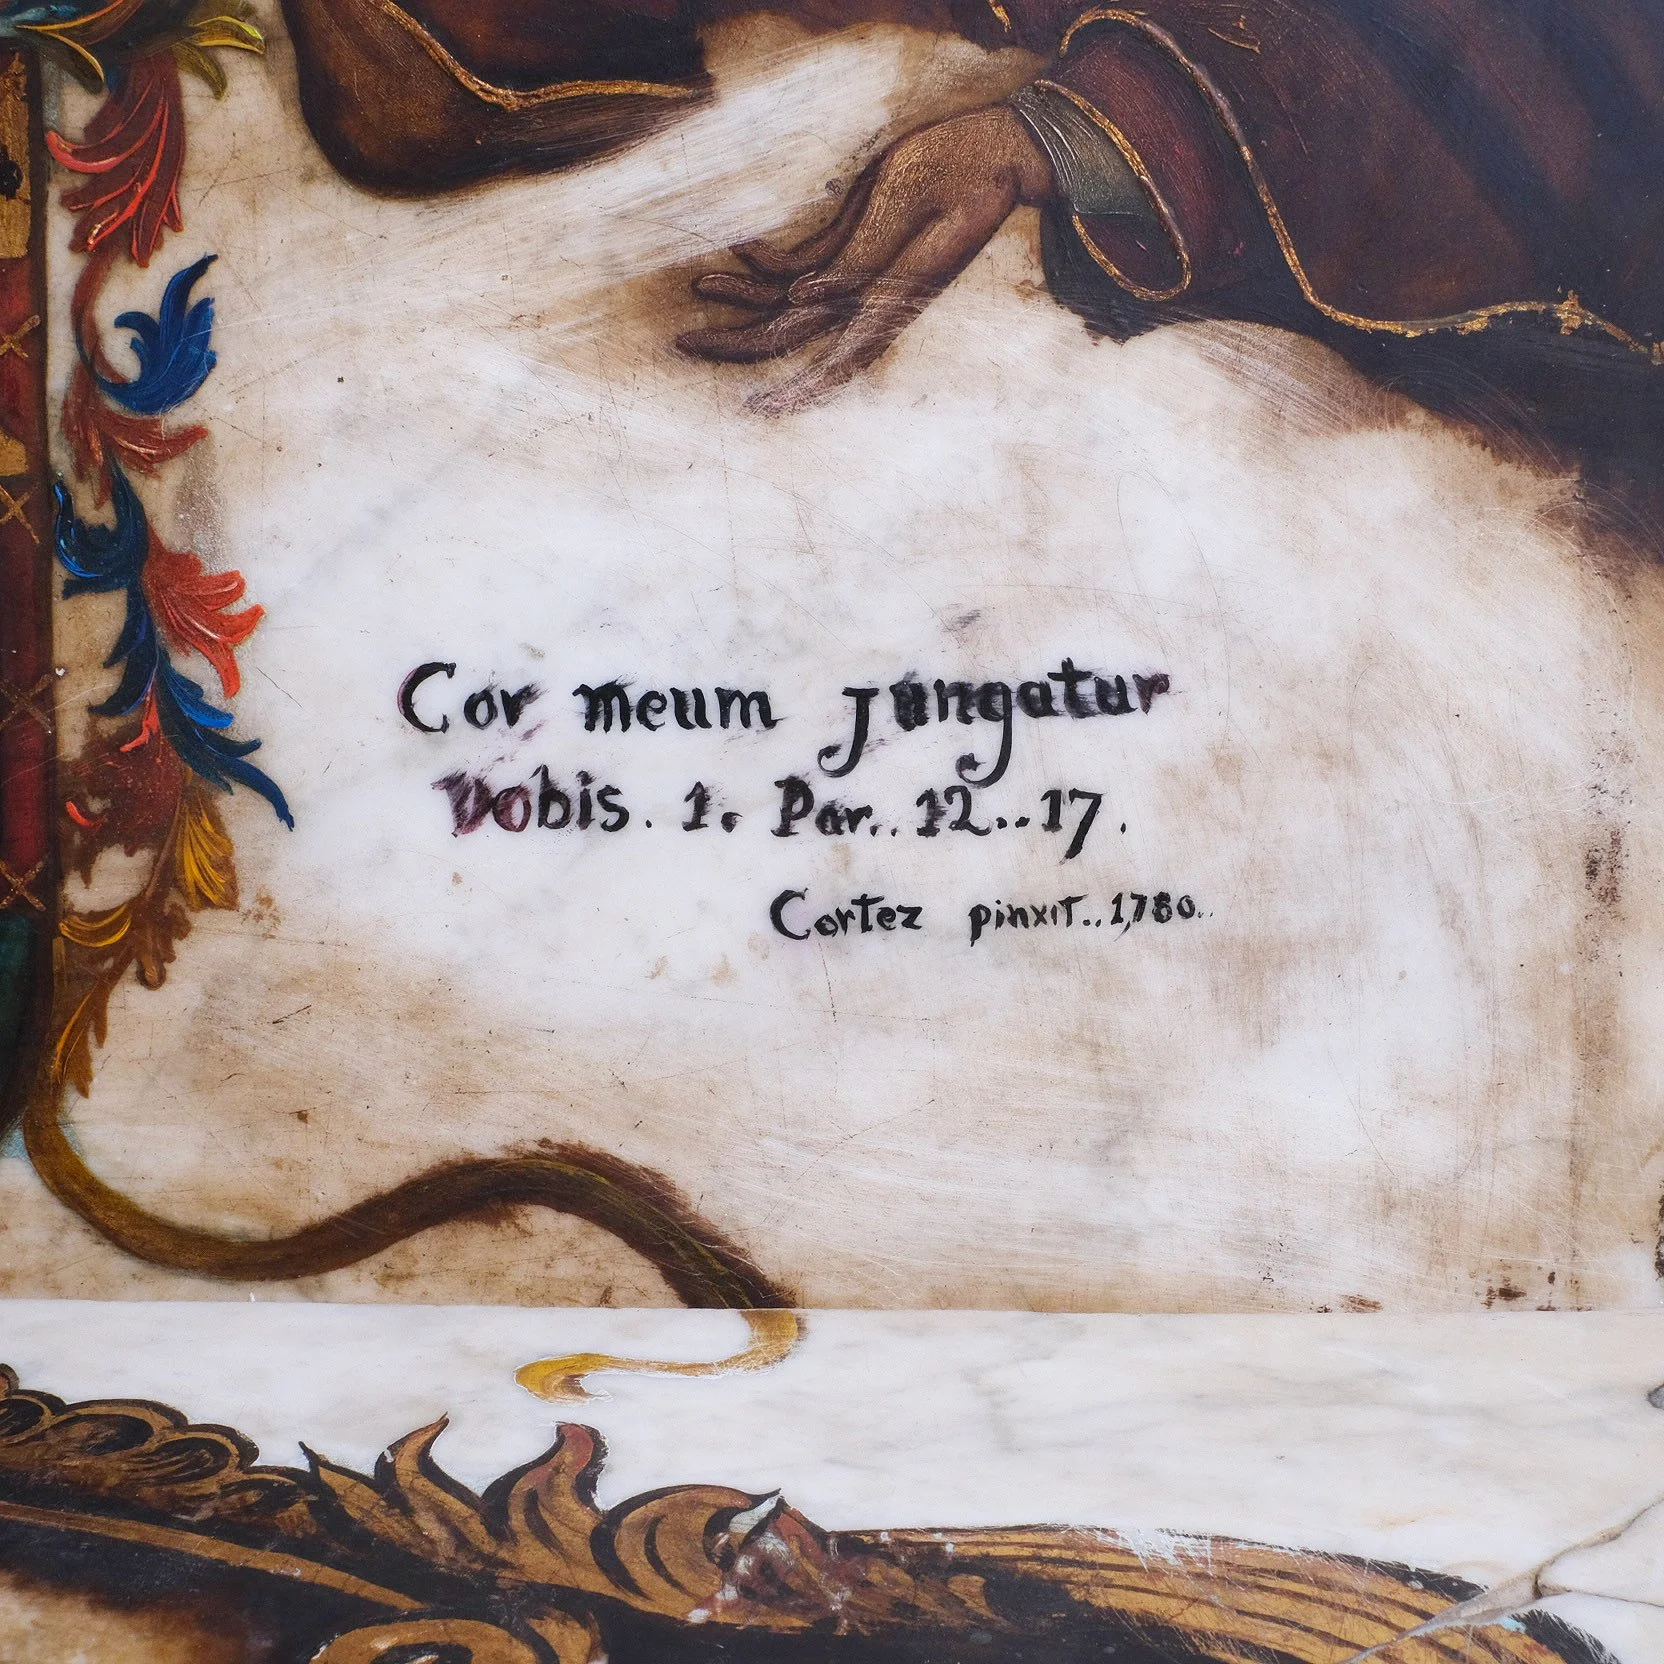 Cor meum jungatur
Vobis. 1. Par.. 12...17.
Cortez pinxit..1,780..